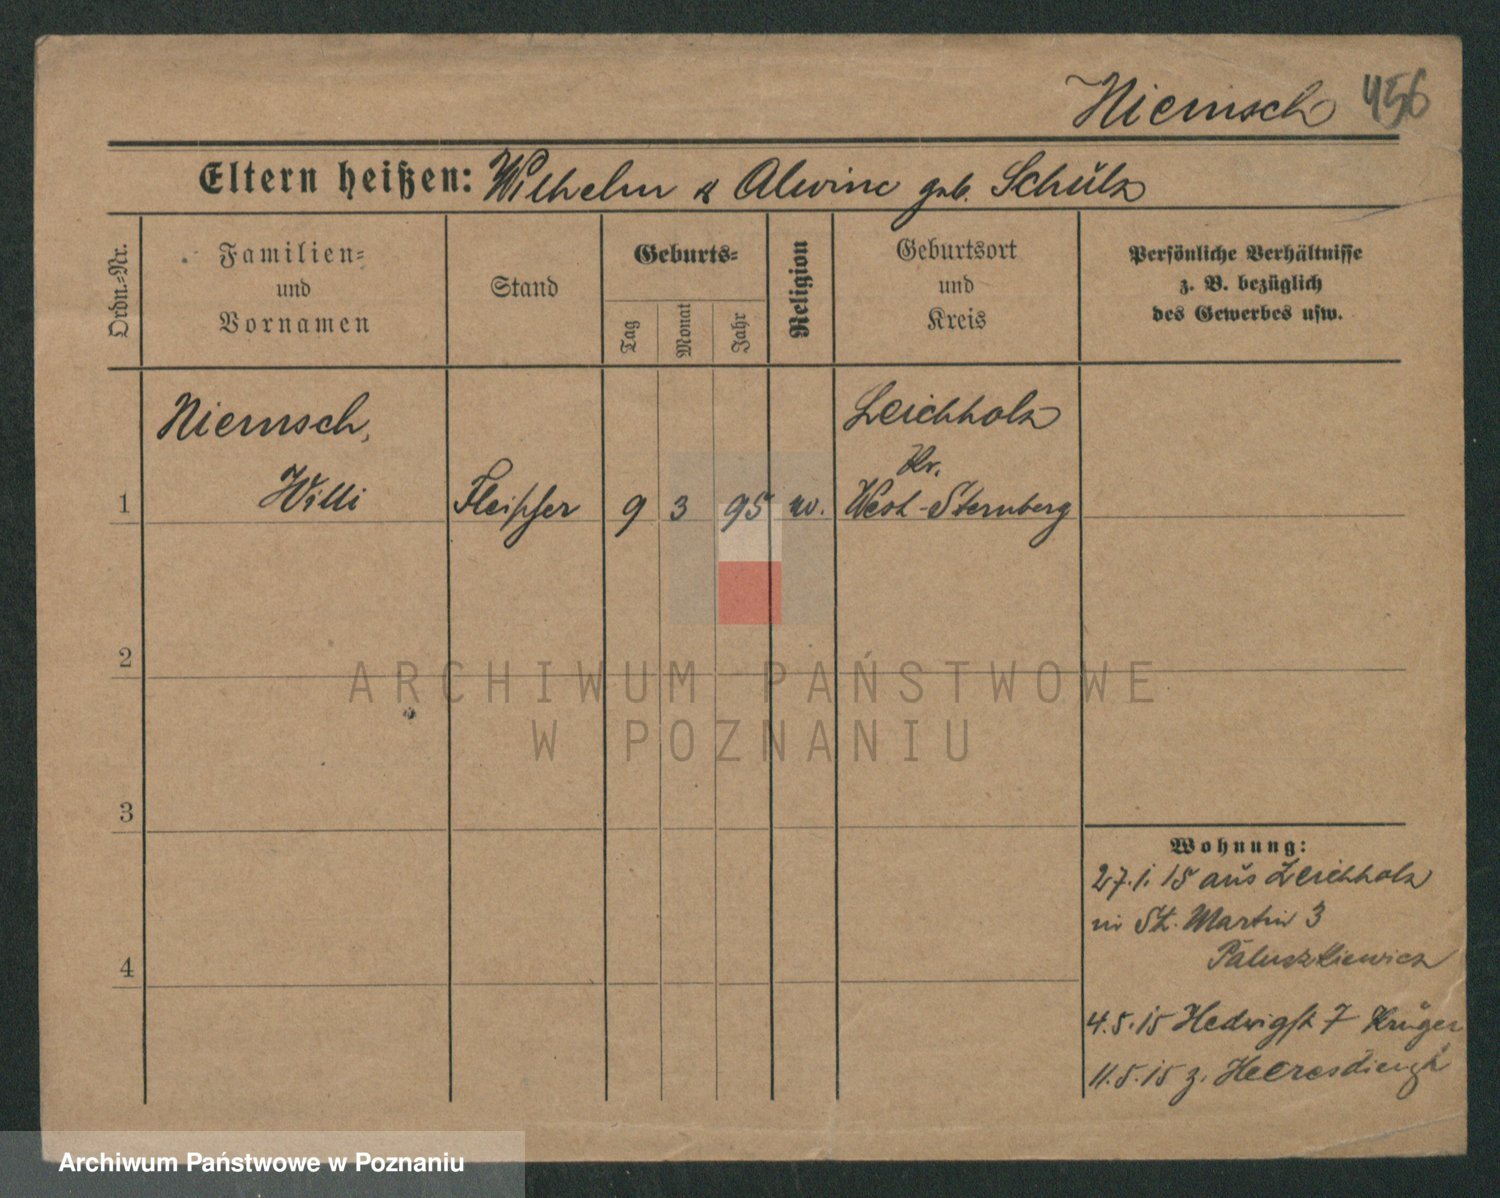 Niemsch 456
Eltern heißen: Wilhelm & Alwine geb. Schülz
Ordn.-Nr.
Familien-
und
Vornamen
Stand
Geburts-
Tag
Monat
Jahr
Religion
Geburtsort
und
Kreis
Persönliche Verhältnisse
z. B. bezüglich
des Gewerbes usw.
Niemsch,
Willi
Leichholz
Kr.
1 Fleischer 9 3 95 West-Sternberg
2
3
4
Wohnung:
27.1.15 aus Leichholz
in St. Martin 3
Paluszkiewicz
4.5.15 Hedwigst 7 Krüger
11.5.15 z. Heeresdienst
ARCHIWUM PAŃSTWOWE
W POZNANIU
Archiwum Państwowe w Poznaniu